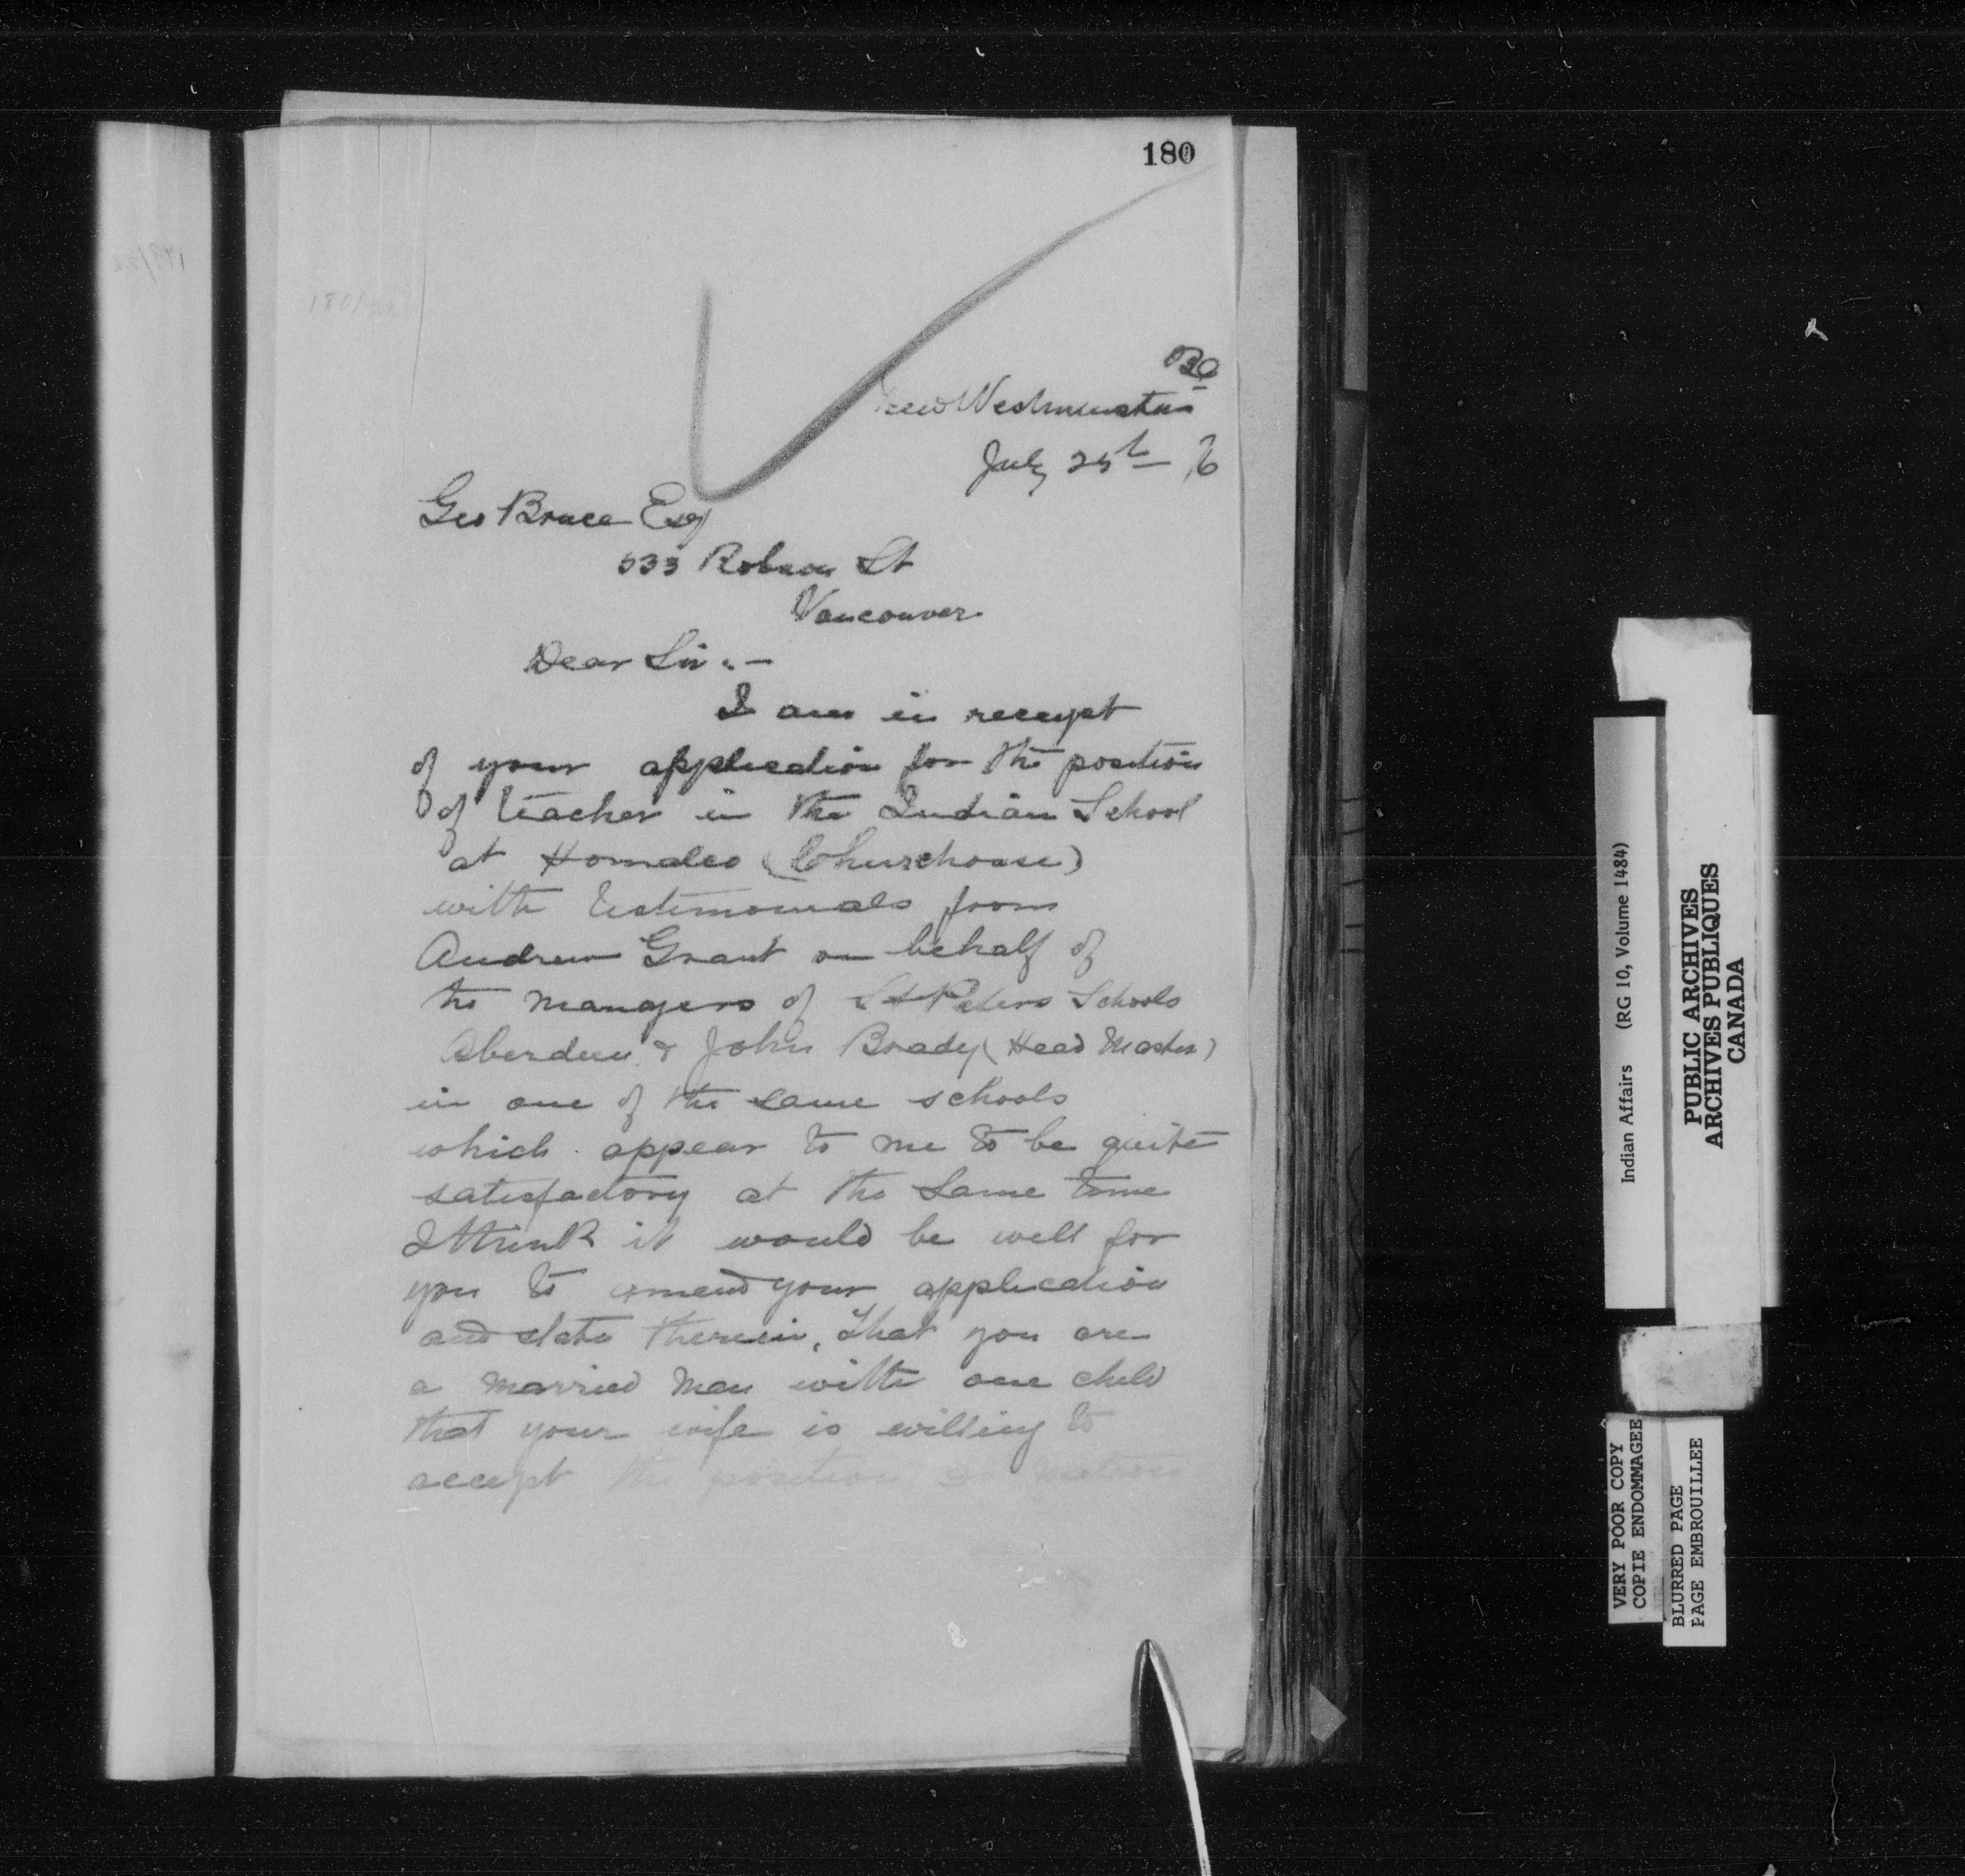 180
BC
New Westminster
July 25th 
Geo Bruce Esq
533 Robson St
Vancouver
Dear Sir :-
I am in receypt
of your application for the position
of teacher in the Indian School
at Homalco (Churchouse)
with testimonials from
Andrew Grant on behalf of
the mangers of St Peters Schools
Aberdeen & John Brady (Head Master)
in one of the same schools
which appear to me to be quite
satisfactory at the same time
I think it would be well for
you to amend your application
and state therein, that you are
a married man with one child
that your wife is willing to
accept the position as matron
Indian Affairs (RG 10, Volume 1484)
PUBLIC ARCHIVES
ARCHIVES PUBLIQUES
CANADA
VERY POOR COPY
COPIE ENDOMMAGEE
BLURRED PAGE
PAGE EMBROUILLEE